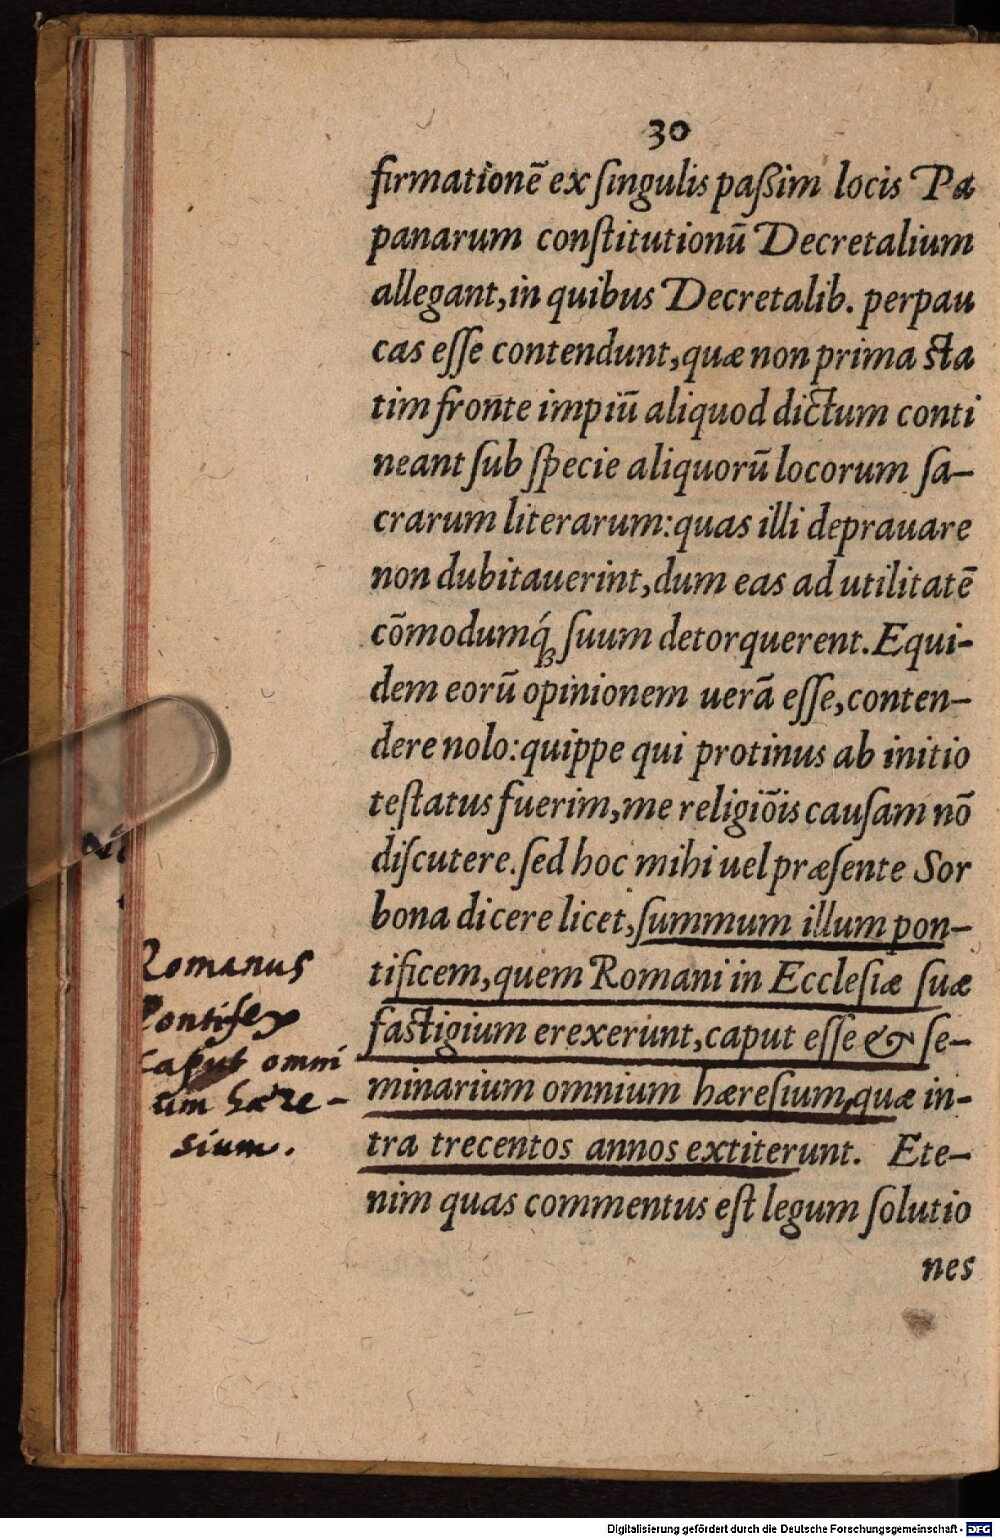 30
firmationē ex ſingulis paßim locis Pa
panarum conſtitutionū Decretalium
allegant, in quibus Decretalib. perpau
cas eſſe contendunt, quæ non prima ſta
tim fronte impiū aliquod dictum conti
neant ſub ſpecie aliquorū locorum ſa-
crarum literarum: quas illi deprauare
non dubitauerint, dum eas ad utilitatē
cōmodumq́ꝫ ſuum detorquerent. Equi-
dem eorū opinionem uerā eſſe, conten-
dere nolo: quippe qui protinus ab initio
teſtatus fuerim, me religiōis cauſam nō
diſcutere. ſed hoc mihi uel præſente Sor
bona dicere licet, ſummum illum pon-
tificem, quem Romani in Eccleſiæ ſuæ
faſtigium erexerunt, caput eſſe & ſe-
minarium omnium hæreſium, quæ in-
tra trecentos annos extiterunt. Ete-
nim quas commentus eſt legum ſolutio
nes
Romanus
Pontifex
caput omni
um hære-
sium.
Digitalisierung gefördert durch die Deutsche Forschungsgemeinschaft - DFG